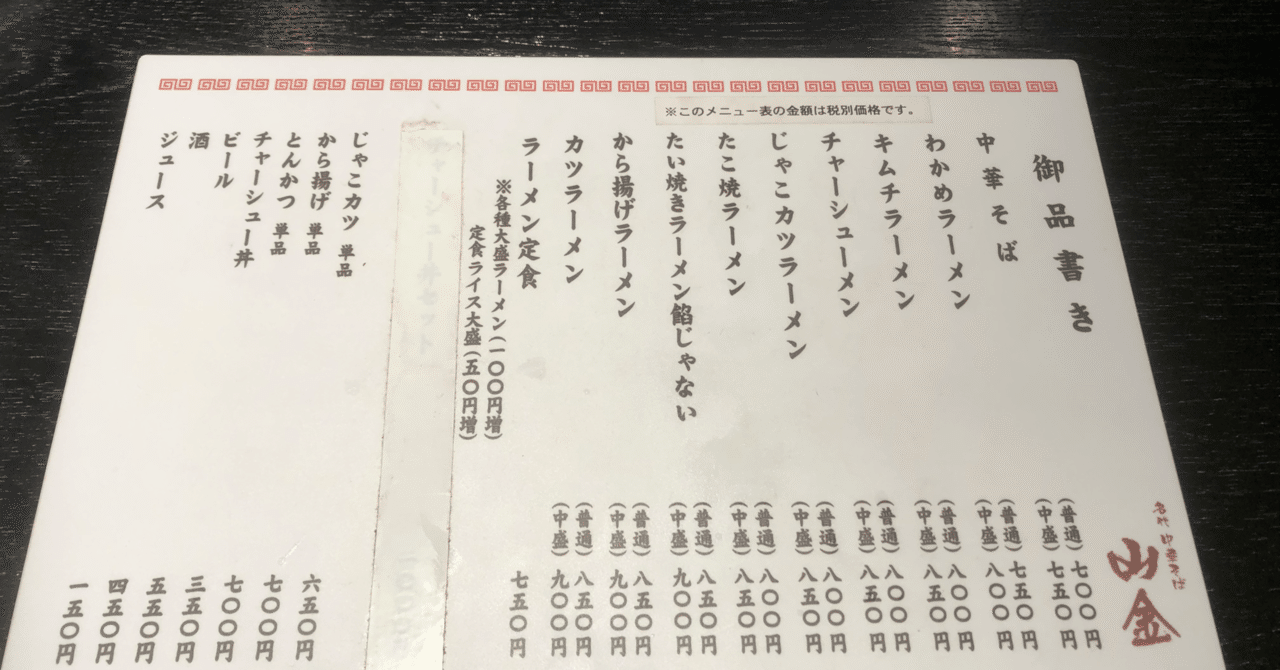 ※このメニュー表の金額は税別価格です。
御品書き
名代 中華そば
山金
中華そば (普通)七〇〇円
(中盛)七五〇円
わかめラーメン (普通)七五〇円
(中盛)八〇〇円
キムチラーメン (普通)八〇〇円
(中盛)八五〇円
チャーシューメン (普通)八〇〇円
(中盛)八五〇円
じゃこカツラーメン (普通)八〇〇円
(中盛)八五〇円
たこ焼ラーメン (普通)八〇〇円
(中盛)八五〇円
たい焼きラーメン餡じゃない (普通)八五〇円
(中盛)九〇〇円
から揚げラーメン (普通)八五〇円
(中盛)九〇〇円
カツラーメン (普通)八五〇円
(中盛)九〇〇円
ラーメン定食 七五〇円
※各種大盛ラーメン(一〇〇円増)
定食ライス大盛(五〇円増)
じゃこカツ 単品 六五〇円
から揚げ 単品 七〇〇円
とんかつ 単品 七〇〇円
チャーシュー丼 三五〇円
ビール 五五〇円
酒 四五〇円
ジュース 一五〇円